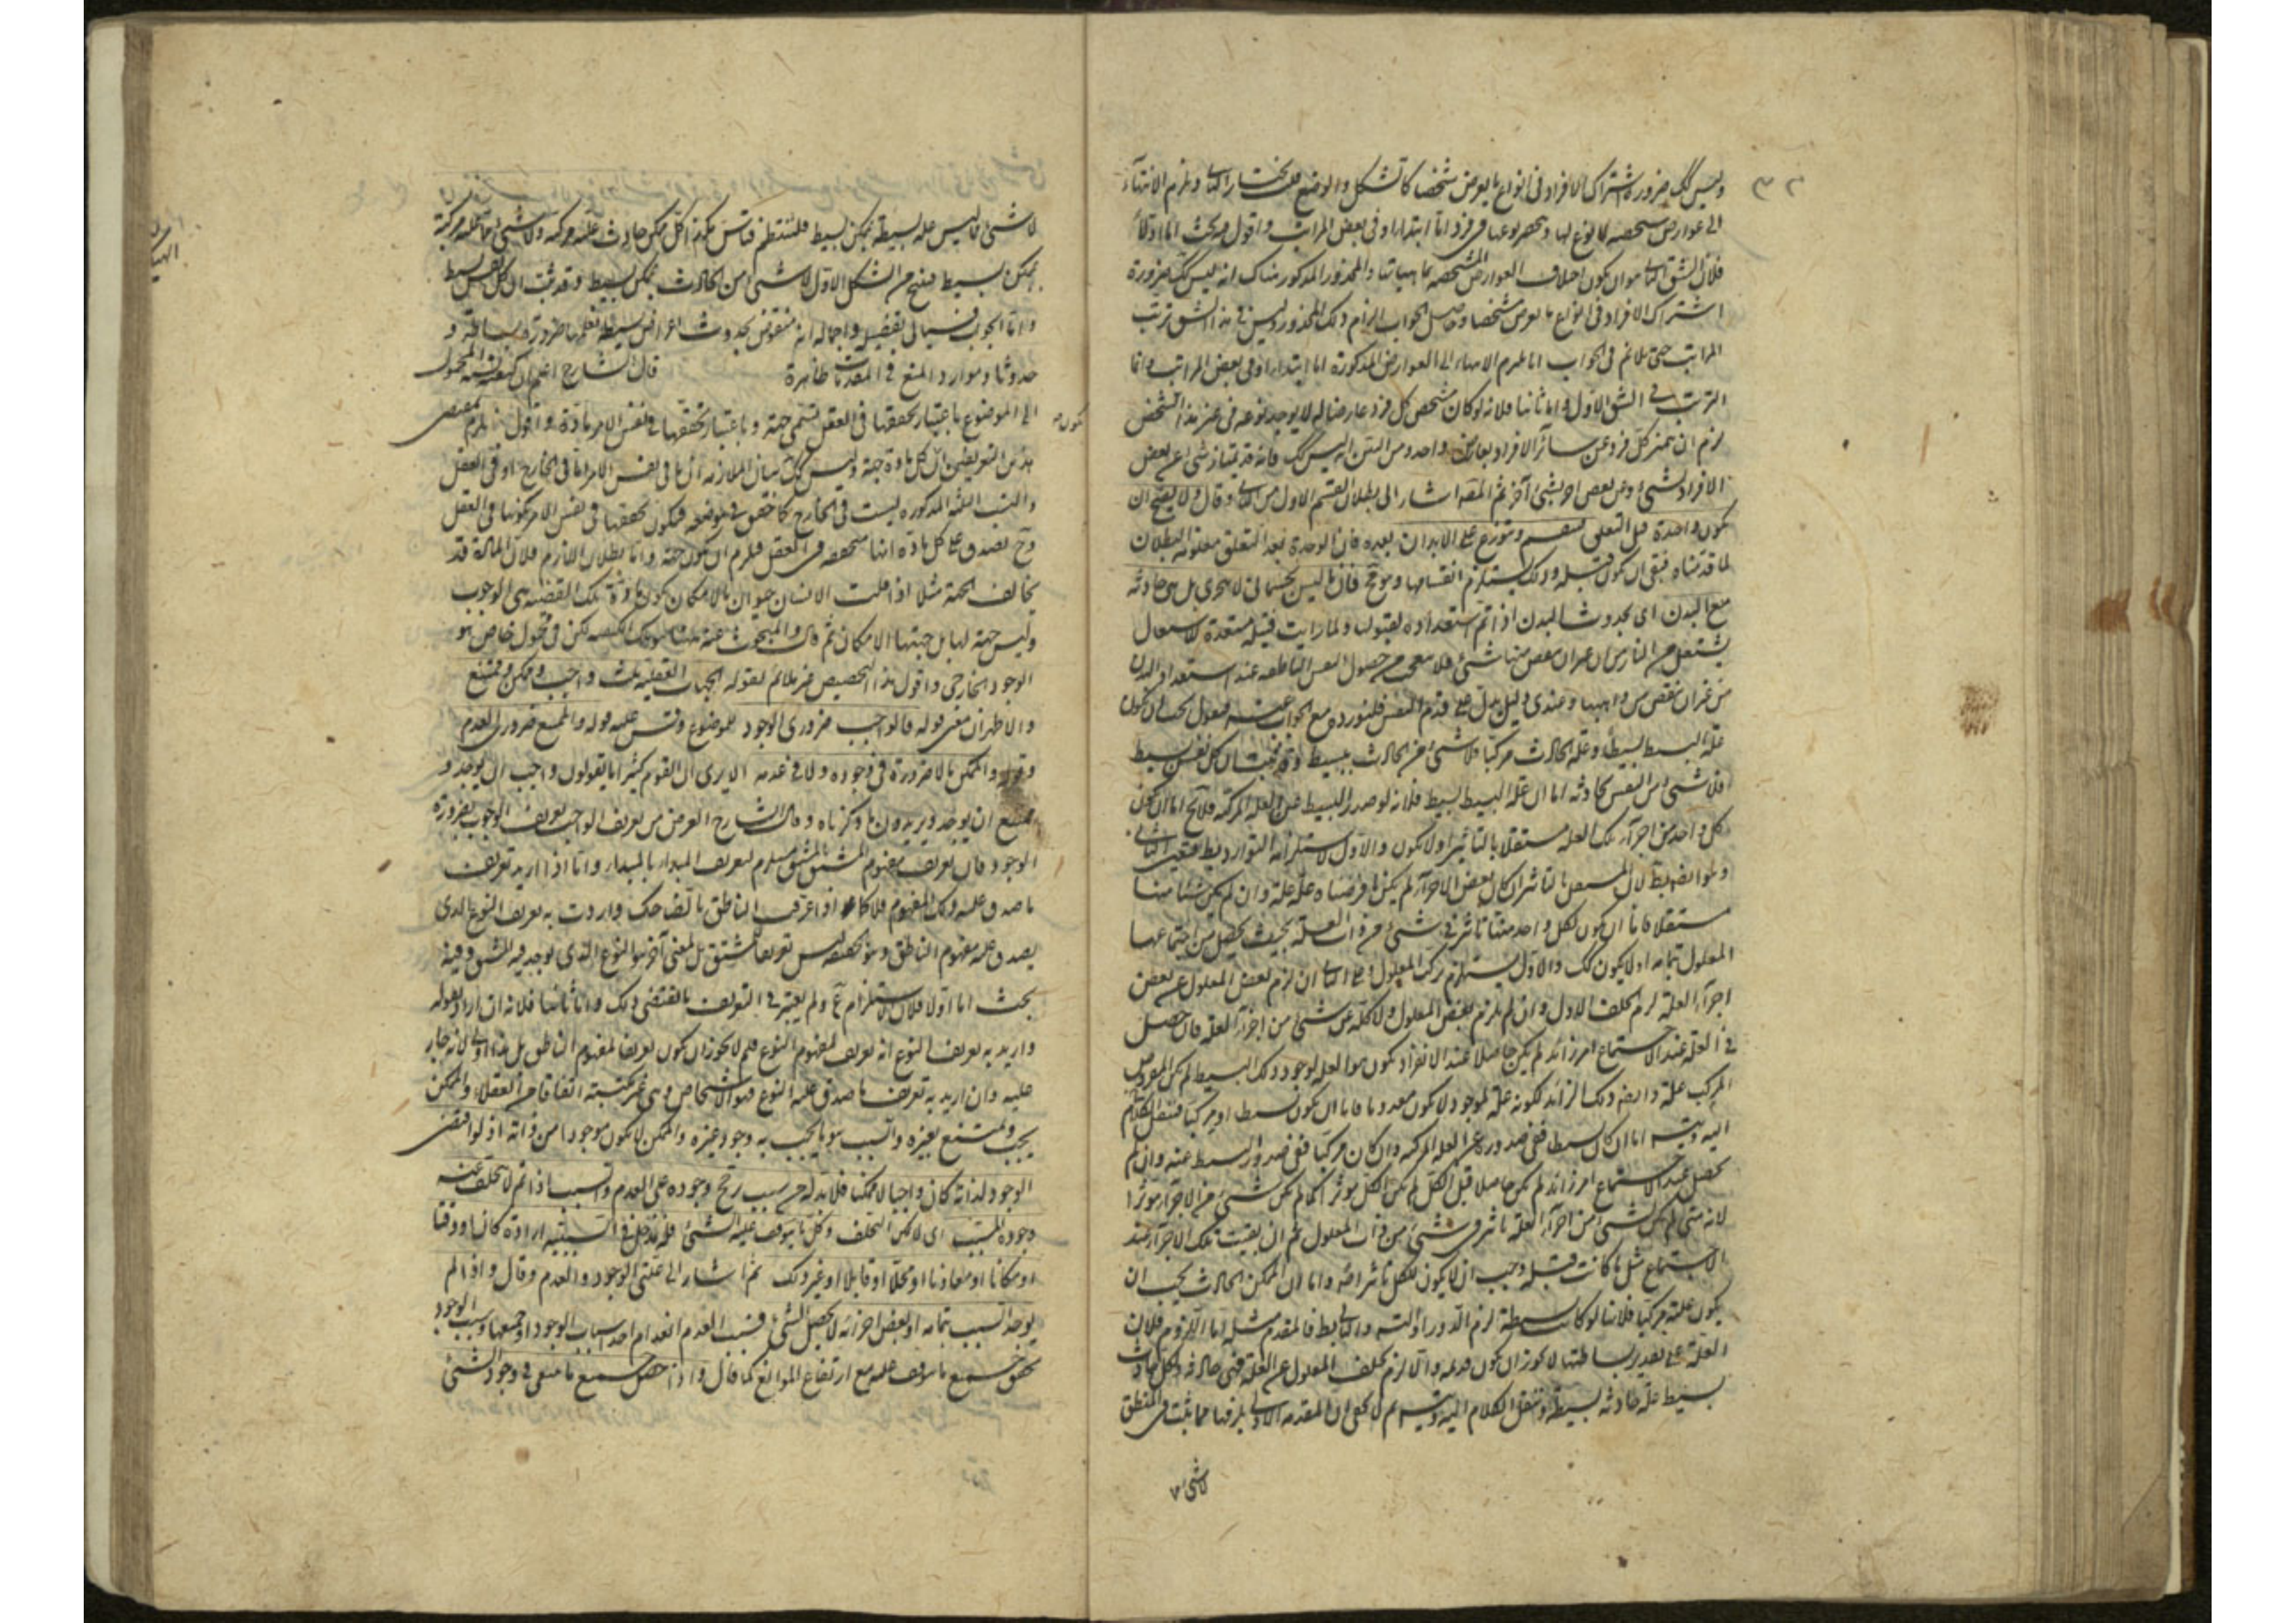 وليس كك ضرورة اشتراك الافراد في انواع ما يعرض شخصا كالشكل والوضع
الى عوارض شخصية لا نوع لها او ينحصر نوعها في فرد اما ابتداء او في بعض المراتب واقول فيه بحث اما اولا
فلان الشق الثاني هو ان يكون اختلاف العوارض المشخصة بماهياتها والمحذور المذكور هناك انه ليس كك ضرورة
اشتراك الافراد في انواع ما يعرض شخصا وحاصل الجواب التزام ذلك المحذور وليس في هذا الشق ترتب
المراتب حتى يلائم في الجواب انا نلتزم الانتهاء الى العوارض المذكورة اما ابتداء او في بعض المراتب وانما
الترتب في الشق الاول واما ثانيا فلانه لو كان مشخص كل فرد عارضا له لا يوجد نوعه في غير هذا الشخص
لزم ان يتميز كل فرد عن سائر الافراد بعارض واحد ومن البين انه ليس كك فانه قد يمتاز شيء عن بعض
الافراد بشيء وعن بعض اخر بشيء آخر ثم المصـ اشار الى بطلان القسم الاول من الثاني وقال ولا يصح ان
يكون واحدة قبل التعلق ينقسم ويتوزع على الابدان بعده فان الوحدة بعد التعلق معلومة البطلان
لما قدمناه فبقي ان يكون قبله وذلك يستلزم انقسامها وهو مح فان ما ليس بجسماني لا يتجزى بل هي حادثة
مع البدن اي بحدوث البدن اذا تم استعداده لقبولها ولما رايت فتيلة مستعدة للاشتعال
يشتعل من النار من غير ان ينقص منها شيء فلا تتعجب من حصول النفس الناطقة عند استعداد البدن
من غير ان ينقص من واهبها وعندي دليل يدل على قدم النفس فلنورده مع الجواب عنه فنقول يجب ان يكون
علة البسيط بسيطا وعلة الحادث مركبا فلا شيء من الحادث ببسيط وقد ثبت ان كل نفس بسيط
فلا شيء من النفس بحادثة اما ان علة البسيط بسيط فلانه لو صدر البسيط عن العلة المركبة فلا يخ اما ان يكون
كل واحد من اجزاء تلك العلة مستقلا بالتاثير او لا يكون والاول لاستلزامه التوارد يبط فتعين الثاني
وهو ايضا يبطل لان المستقل بالتاثير ان كان بعض الاجزاء لم يكن ما فرضناه علة علة وان لم يكن شيئا منها
مستقلا فاما ان يكون لكل واحد منها تاثير في شيء من ذات المعلول بحيث يحصل من اجتماعها
المعلول بتمامه او لا يكون كك والاول يستلزم تركب المعلول وعلى الثاني ان لزم بعض المعلول عن بعض
اجزاء العلة لزم الخلف الاول وان لم يلزم بعض المعلول ولا كله عن شيء من اجزاء العلة فان حصل
في العلة عند الاجتماع امر زائد لم يكن حاصلا عند الانفراد يكون هو العلة لوجود ذلك البسيط لم يكن المفروض
المركب علة وايضا ذلك الزائد لكونه علة لموجود لا يكون معدوما فاما ان يكون بسيطا او مركبا فننقل الكلام
اليه ويتسـ اما ان كان بسيطا ففي صدوره عن العلة المركبة وان كان مركبا ففي صدور البسيط عنه وان لم
يحصل عند الاجتماع امر زائد لم يكن حاصلا قبل الكل لم يكن الكل مؤثرا كما لم يكن شيء من الاجزاء مؤثرا
لانه متى لم يكن لشيء من اجزاء العلة تاثير في شيء من ذات المعلول ثم ان بقيت تلك الاجزاء عند
الاجتماع مثل ما كانت قبله وجب ان لا يكون للكل تاثير اصلا واما ان الممكن الحادث يجب ان
يكون علته مركبا فلانها لو كانت بسيطة لزم الدور او التسـ والتالي بط فالمقدم مثله اما اللزوم فلان
العلة على تقدير بساطتها لا يجوز ان يكون قديمة والا لزم تخلف المعلول عن العلة فهي حادثة ولكل حادث
بسيط علة حادثة بسيطة وننقل الكلام اليه ويتسـ ثم لا يخفى ان المقدمة الاولى يلزمها مما يثبت في المنطق
لا شيء
لا شيء مما ليس علته بسيطة بممكن بسيط فلننتظم قياس هكذا كل ممكن حادث علته مركبة ولا شيء مما علته مركبة
بممكن بسيط فينتج من الشكل الاول لا شيء من الحادث بممكن بسيط وقد ثبت ان كل نفس بسيط
واما الجواب فسياتي بتفصيله واجماله انه منقوض بحدوث اعراض بسيطة نعلم بالضرورة بساطتها و
حدوثها وموارد المنع في المقدمات ظاهرة قال الشارح اعلم ان كيفية نسبة المحمول
الى الموضوع باعتبار تحققها في العقل تسمى جهة وباعتبار تحققها في نفس الامر مادة واقول يلزم بمقتضى
هذين التعريفين ان كل مادة جهة وليس كك بيان الملازمة ان ما في نفس الامر اما في الخارج او في العقل
والنسبة المذكورة ليست في الخارج كما حقق في موضعه فيكون تحققها في نفس الامر بكونها في العقل
وح يصدق على كل مادة انها متحققة في العقل فلزم ان يكون جهة واما بطلان اللازم فلان المادة قد
يخالف الجهة مثلا اذا قلت الانسان حيوان بالامكان يكون مادة تلك القضية هي الوجوب
وليس جهة لها بل جهتها الامكان ثم قال والمبحوث عنه ههنا تلك الكيفية لكن في محمول خاص هو
الوجود الخارجي واقول هذا التخصيص غير ملائم لقوله الجهات العقلية ثلث واجب وممكن وممتنع
والاظهر ان معنى قوله فالواجب ضروري الوجود للموضوع وقس عليه قوله والممتنع ضروري العدم
وقوله والممكن ما لا ضرورة في وجوده ولا في عدمه الا يرى ان القوم كثيرا ما يقولون واجب ان يوجد و
ممتنع ان يوجد ويريدون ما ذكرناه وقال الشارح الغرض من تعريف الواجب تعريف الوجوب بضرورة
الوجود فان تعريف مفهوم المشتق بالمشتق مستلزم لتعريف المبدا بالمبدا واما اذا اريد تعريف
ما صدق عليه ذلك المفهوم فلا كما اذا عرفت الناطق بالضاحك واردت به تعريف النوع الذي
يصدق عليه مفهوم الناطق وهو بحقيقة ليس تعريفا لمشتق بل لمعنى آخر هو النوع الذي يوجد فيه المشتق وفيه
بحث اما اولا فلان الاستلزام مم ولم يعتبر في التعريف ما يقتضي ذلك واما ثانيا فلانه ان اراد بقوله
واريد به تعريف النوع انه تعريف لمفهوم النوع فلم لا يجوز ان يكون تعريفا لمفهوم الناطق بل هذا اولى لانه جار
عليه وان اريد به تعريف ما صدق عليه النوع فهو الاشخاص وهي غير مكتسبة اتفاقا من العقلاء والممكن
يجب ويمتنع بغيره والسبب هو ما يجب به وجود غيره والممكن لا يكون موجودا من ذاته اذ لو اقتضى
الوجود لذاته كان واجبا لا ممكنا فلا بد له من سبب يرجح وجوده على العدم والسبب اذا تم لا يتخلف عنه
وجود المسبب اي لا يمكن التخلف وكل ما يتوقف عليه الشيء فله مدخل في السببية ارادة كان او وقتا
او مكانا او معاونا او محلا او قابلا او غير ذلك ثم اشار الى علتي الوجود والعدم وقال واذا لم
يوجد السبب بتمامه او بعض اجزائه لا يحصل الشيء فسبب العدم انعدام احد اسباب الوجود او جميعها وسبب الوجود
تحقق جميع ما يتوقف عليه مع ارتفاع الموانع كما قال واذا حصل جميع ما ينبغي في وجود الشيء